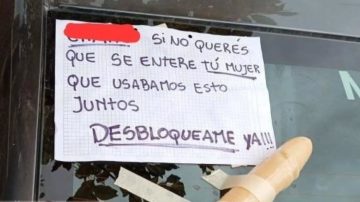 SI NO QUERÉS
QUE SE ENTERE TÚ MUJER
QUE USABAMOS ESTO
JUNTOS
DESBLOQUEAME YA!!!